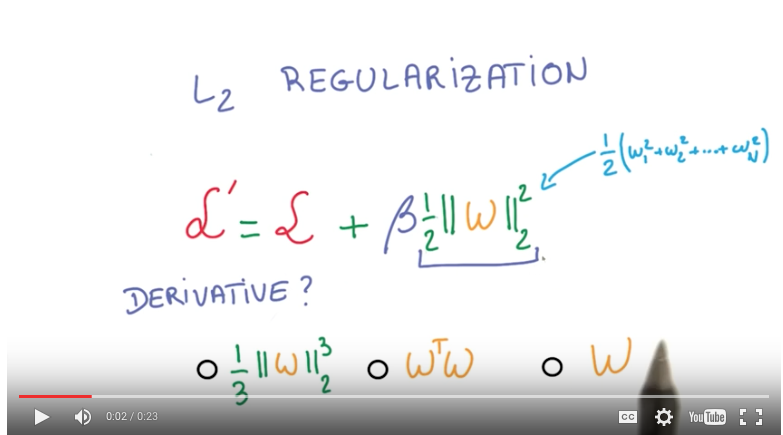 L₂ REGULARIZATION
½(ω₁²+ω₂²+...+ω_N²)
ℒ' = ℒ + β ½‖ω‖₂²
DERIVATIVE?
○ ⅓‖ω‖₂³ ○ ωᵀω ○ ω
0:02 / 0:23 CC YouTube